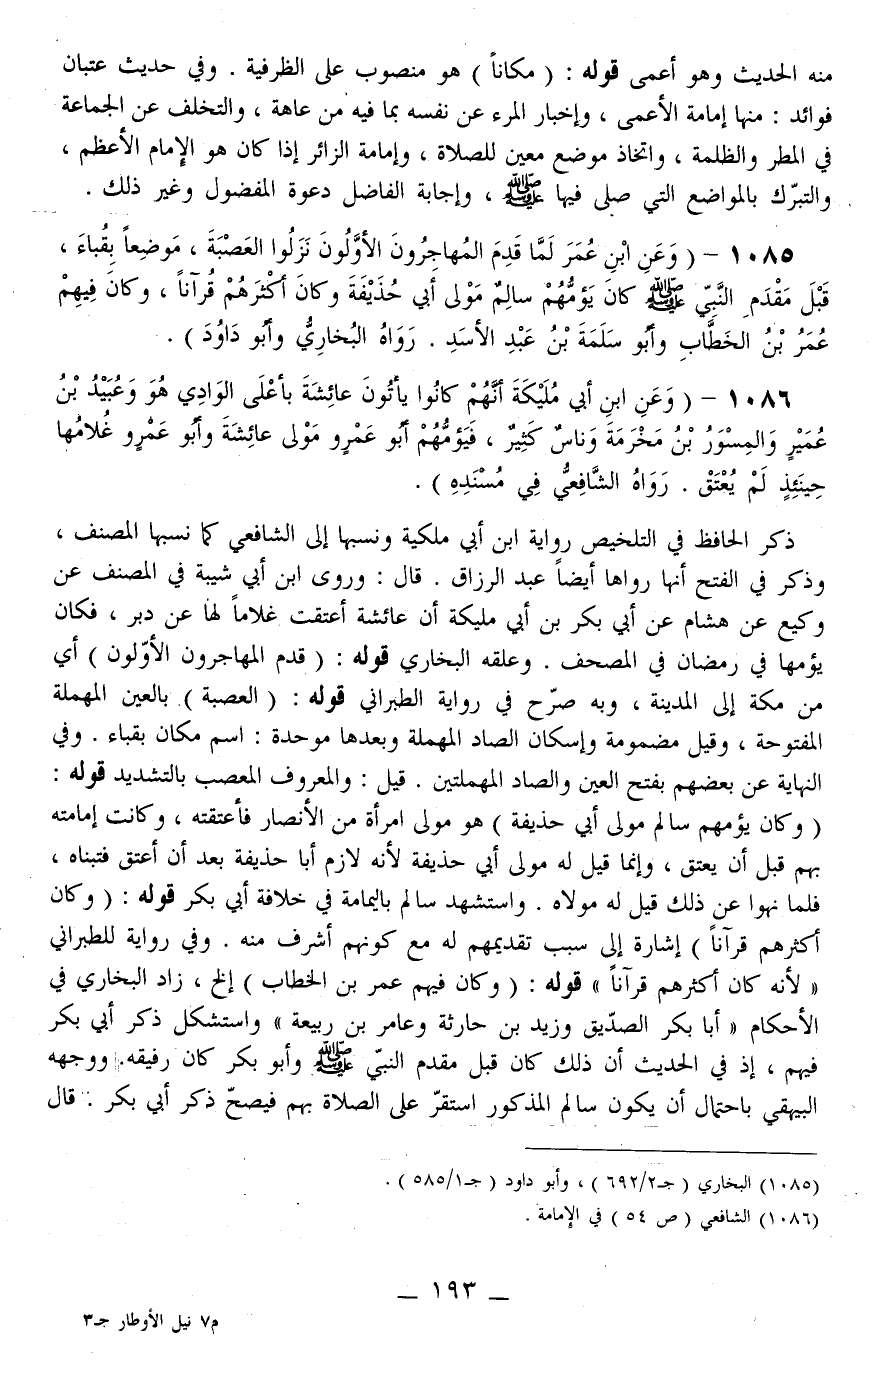 منه الحديث وهو أعمى قوله : ( مكاناً ) هو منصوب على الظرفية . وفي حديث عتبان
فوائد : منها إمامة الأعمى ، وإخبار المرء عن نفسه بما فيه من عاهة ، والتخلف عن الجماعة
في المطر والظلمة ، واتخاذ موضع معين للصلاة ، وإمامة الزائر إذا كان هو الإمام الأعظم ،
والتبرّك بالمواضع التي صلى فيها ﷺ ، وإجابة الفاضل دعوة المفضول وغير ذلك .
١٠٨٥ – ( وَعَنِ ابْنِ عُمَرَ لَمَّا قَدِمَ المُهاجِرُونَ الأوَّلُونَ نَزَلُوا العَصْبَةَ ، مَوضِعاً بِقُباءَ ،
قَبْلَ مَقْدَمِ النَّبِيِّ ﷺ كانَ يَؤمُّهُمْ سالِمٌ مَوْلى أبي حُذَيْفَةَ وكانَ أكْثَرَهُمْ قُرآناً ، وكانَ فِيهِمْ
عُمَرُ بْنُ الخَطَّابِ وأبُو سَلَمَةَ بْنُ عَبْدِ الأسَدِ . رَوَاهُ البُخاريُّ وأبُو دَاوُدَ ) .
١٠٨٦ – ( وَعَنِ ابنِ أبي مُلَيْكَةَ أنَّهُمْ كانُوا يأتُونَ عائِشَةَ بأعْلَى الوَادِي هُوَ وَعُبَيْدُ بْنُ
عُمَيْرٍ وَالمِسْوَرُ بْنُ مَخْرَمَةَ وَناسٌ كَثِيرٌ ، فَيَؤمُّهُمْ أبُو عَمْرٍو مَوْلى عائِشَةَ وأبُو عَمْرٍو غُلامُها
حِينَئِذٍ لَمْ يُعْتَقْ . رَوَاهُ الشَّافِعيُّ فِي مُسْنَدِهِ ) .
ذكر الحافظ في التلخيص رواية ابن أبي ملكية ونسبها إلى الشافعي كما نسبها المصنف ،
وذكر في الفتح أنها رواها أيضاً عبد الرزاق . قال : وروى ابن أبي شيبة في المصنف عن
وكيع عن هشام عن أبي بكر بن أبي مليكة أن عائشة أعتقت غلاماً لها عن دبر ، فكان
يؤمها في رمضان في المصحف . وعلقه البخاري قوله : ( قدم المهاجرون الأوّلون ) أي
من مكة إلى المدينة ، وبه صرّح في رواية الطبراني قوله : ( العصبة ) بالعين المهملة
المفتوحة ، وقيل مضمومة وإسكان الصاد المهملة وبعدها موحدة : اسم مكان بقباء . وفي
النهاية عن بعضهم بفتح العين والصاد المهملتين . قيل : والمعروف المعصب بالتشديد قوله :
( وكان يؤمهم سالم مولى أبي حذيفة ) هو مولى امرأة من الأنصار فأعتقته ، وكانت إمامته
بهم قبل أن يعتق ، وإنما قيل له مولى أبي حذيفة لأنه لازم أبا حذيفة بعد أن أعتق فتبناه ،
فلما نهوا عن ذلك قيل له مولاه . واستشهد سالم باليمامة في خلافة أبي بكر قوله : ( وكان
أكثرهم قرآناً ) إشارة إلى سبب تقديمهم له مع كونهم أشرف منه . وفي رواية للطبراني
« لأنه كان أكثرهم قرآناً » قوله : ( وكان فيهم عمر بن الخطاب ) إلخ ، زاد البخاري في
الأحكام « أبا بكر الصدّيق وزيد بن حارثة وعامر بن ربيعة » واستشكل ذكر أبي بكر
فيهم ، إذ في الحديث أن ذلك كان قبل مقدم النبيّ ﷺ وأبو بكر كان رفيقه . ووجهه
البيهقي باحتمال أن يكون سالم المذكور استقرّ على الصلاة بهم فيصحّ ذكر أبي بكر . قال
(١٠٨٥) البخاري ( جـ٦٩٢/٢ ) ، وأبو داود ( جـ٥٨٥/١ ) .
(١٠٨٦) الشافعي ( ص ٥٤ ) في الإمامة .
– ١٩٣ –
م٧ نيل الأوطار جـ٣